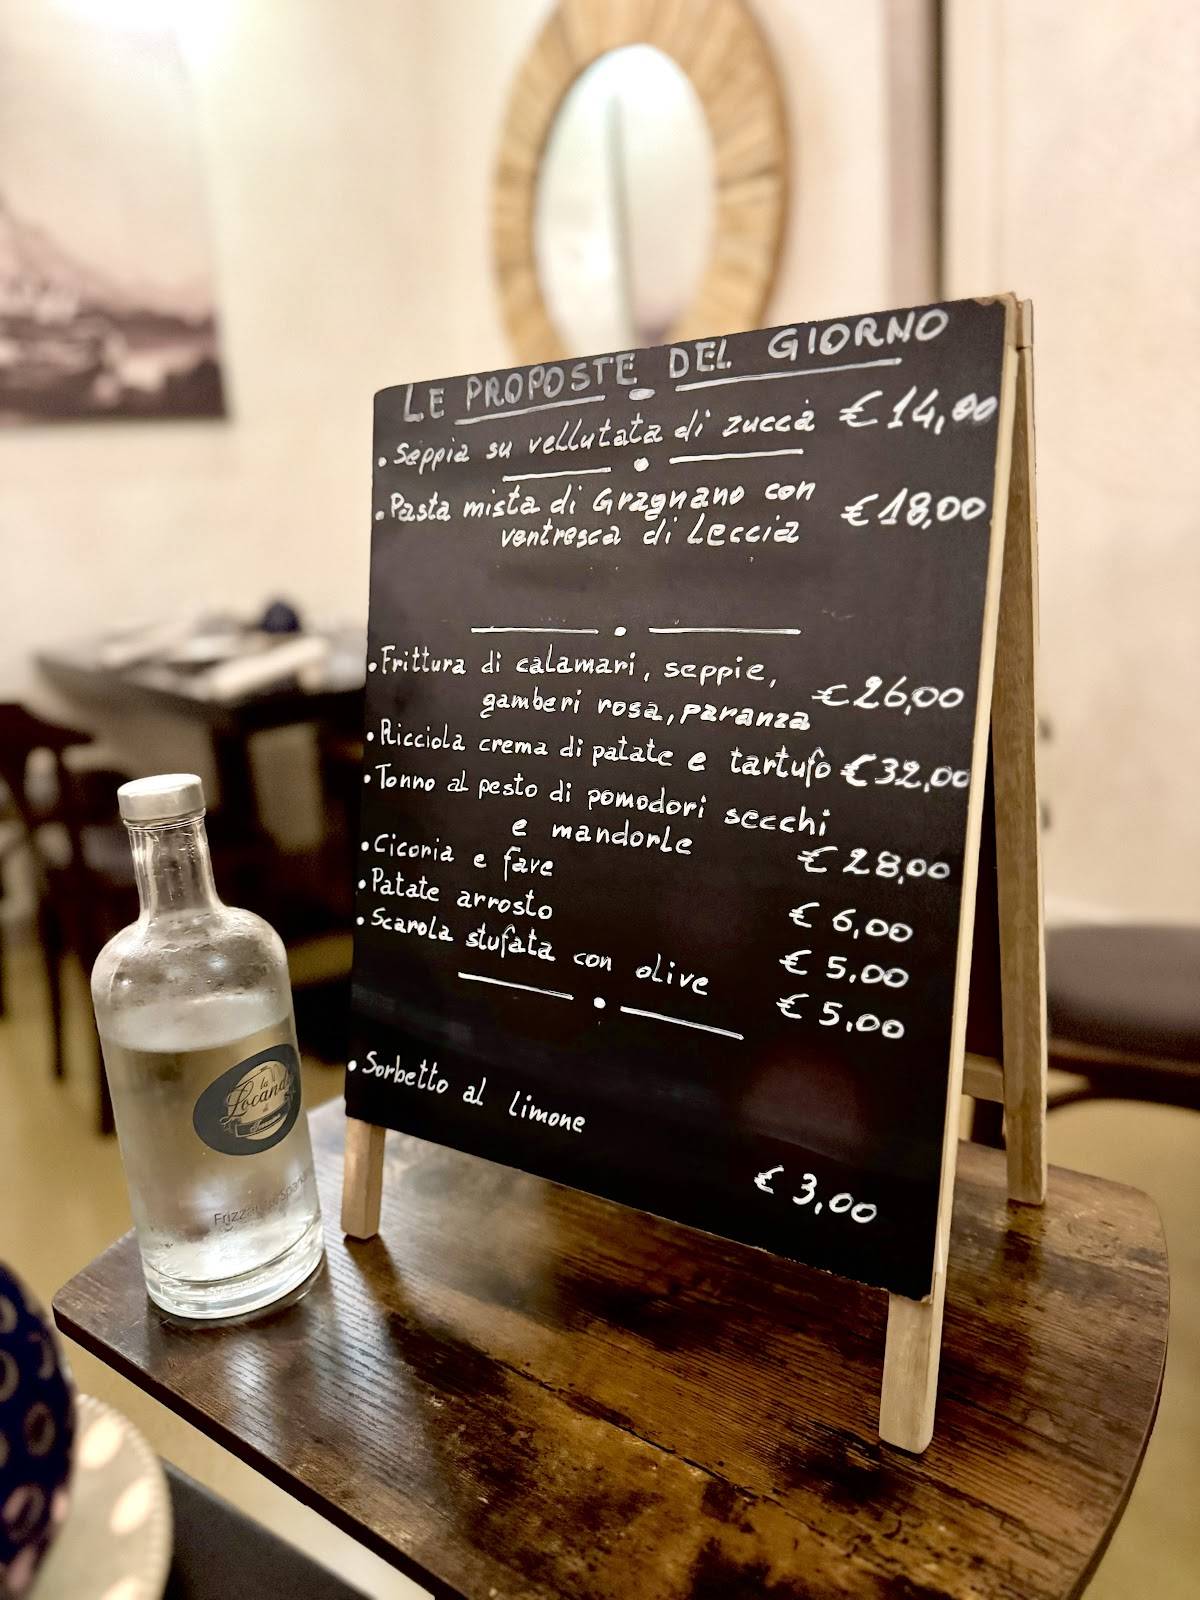 LE PROPOSTE DEL GIORNO
• Seppia su vellutata di zucca € 14,00
• Pasta mista di Gragnano con € 18,00
ventresca di Leccia
• Frittura di calamari, seppie,
gamberi rosa, paranza € 26,00
• Ricciola crema di patate e tartufo € 32,00
• Tonno al pesto di pomodori secchi
e mandorle € 28,00
• Cicoria e fave € 6,00
• Patate arrosto € 5,00
• Scarola stufata con olive € 5,00
• Sorbetto al limone € 3,00
la
Locanda
di